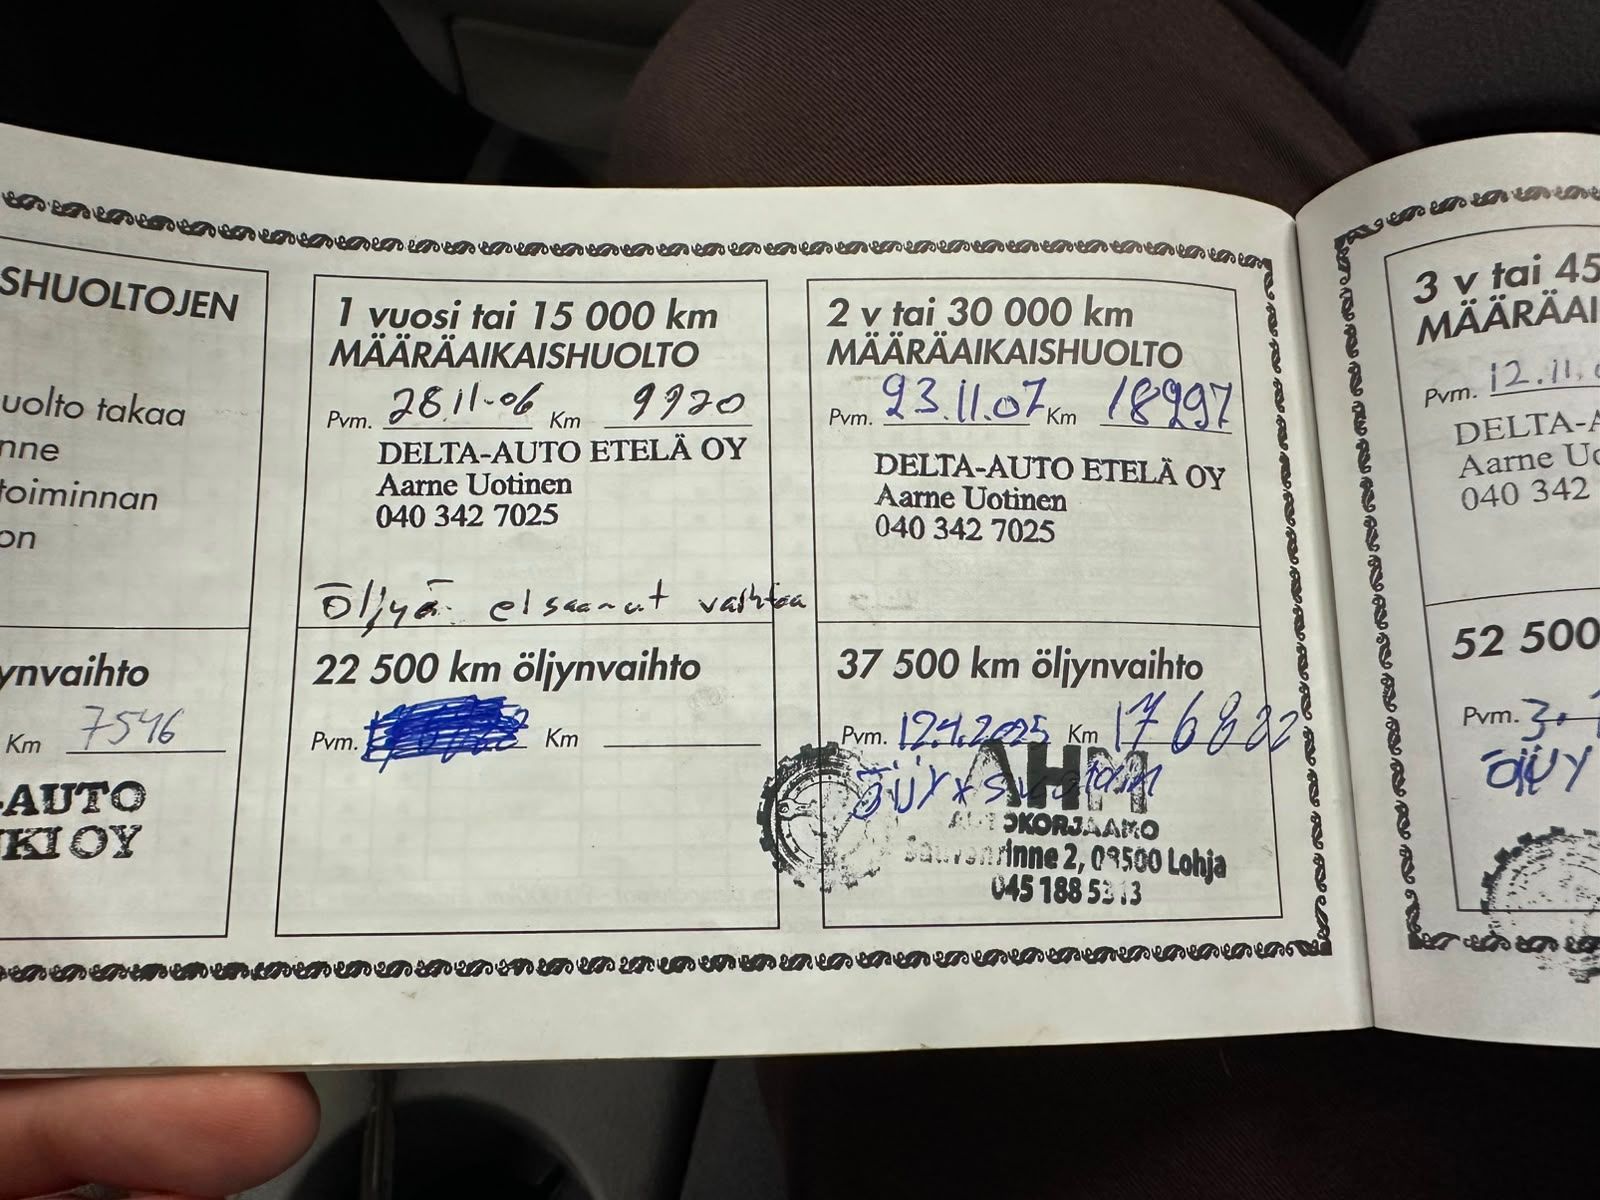 SHUOLTOJEN
uolto takaa
nne
toiminnan
on
ynvaihto
Km 7546
-AUTO
KI OY
1 vuosi tai 15 000 km
MÄÄRÄAIKAISHUOLTO
Pvm. 28.11-06 Km 9920
DELTA-AUTO ETELÄ OY
Aarne Uotinen
040 342 7025
Öljyä ei saanut vaihtaa
22 500 km öljynvaihto
Pvm. Km
2 v tai 30 000 km
MÄÄRÄAIKAISHUOLTO
Pvm. 23.11.07 Km 18997
DELTA-AUTO ETELÄ OY
Aarne Uotinen
040 342 7025
37 500 km öljynvaihto
Pvm. 12.4.2025 Km 176822
AHM
AUTOKORJAAMO
2, 08500 Lohja
045 188 5313
3 v tai 45
MÄÄRÄAI
Pvm. 12.11.
DELTA-A
Aarne Uo
040 342
52 500
Pvm. 3.
öljy